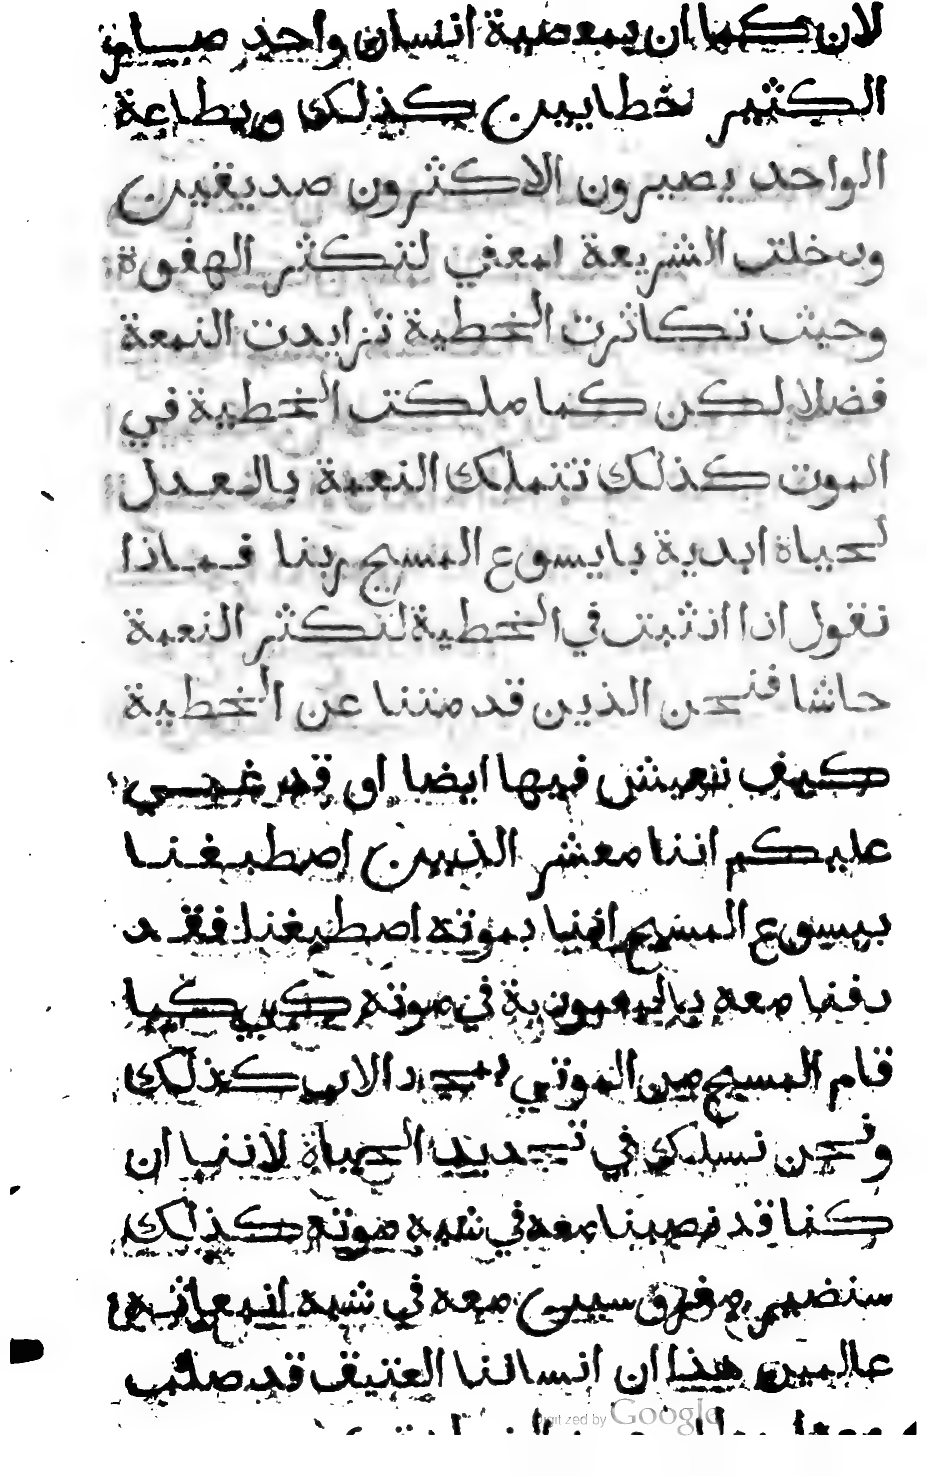 لان كما ان بمعصية انسان واحد صارة
الكثير خطايين كذلك وبطاعة
الواحد يصيرون الاكثرون صديقين
ودخلت الشريعة لتكثر الهفوة
وحيث تكاثرت الخطية تزايدت النعمة
فضلا لكن كما ملكت الخطية في
الموت كذلك تتملك النعمة بالعدل
لحياة ابدية بايسوع المسيح ربنا فماذا
نقول اذا انثبت في الخطية لتكثر النعمة
حاشا فنحن الذين قد متنا عن الخطية
كيف نعيش فيها ايضا او قد غبي
عليكم اننا معشر الذين اصطبغنا
بيسوع المسيح اننا بموته اصطبغنا فقد
دفنا معه بالمعمودية في موته كي كما
قام المسيح من الموتي بمجد الاب كذلك
ونحن نسلك في تجديد الحياة لاننا ان
كنا قد نصبنا معه في شبه موته كذلك
سنصير معه في شبه انبعاثه
عالمين هذا ان انساننا العتيق قد صلب
Digitized by Google